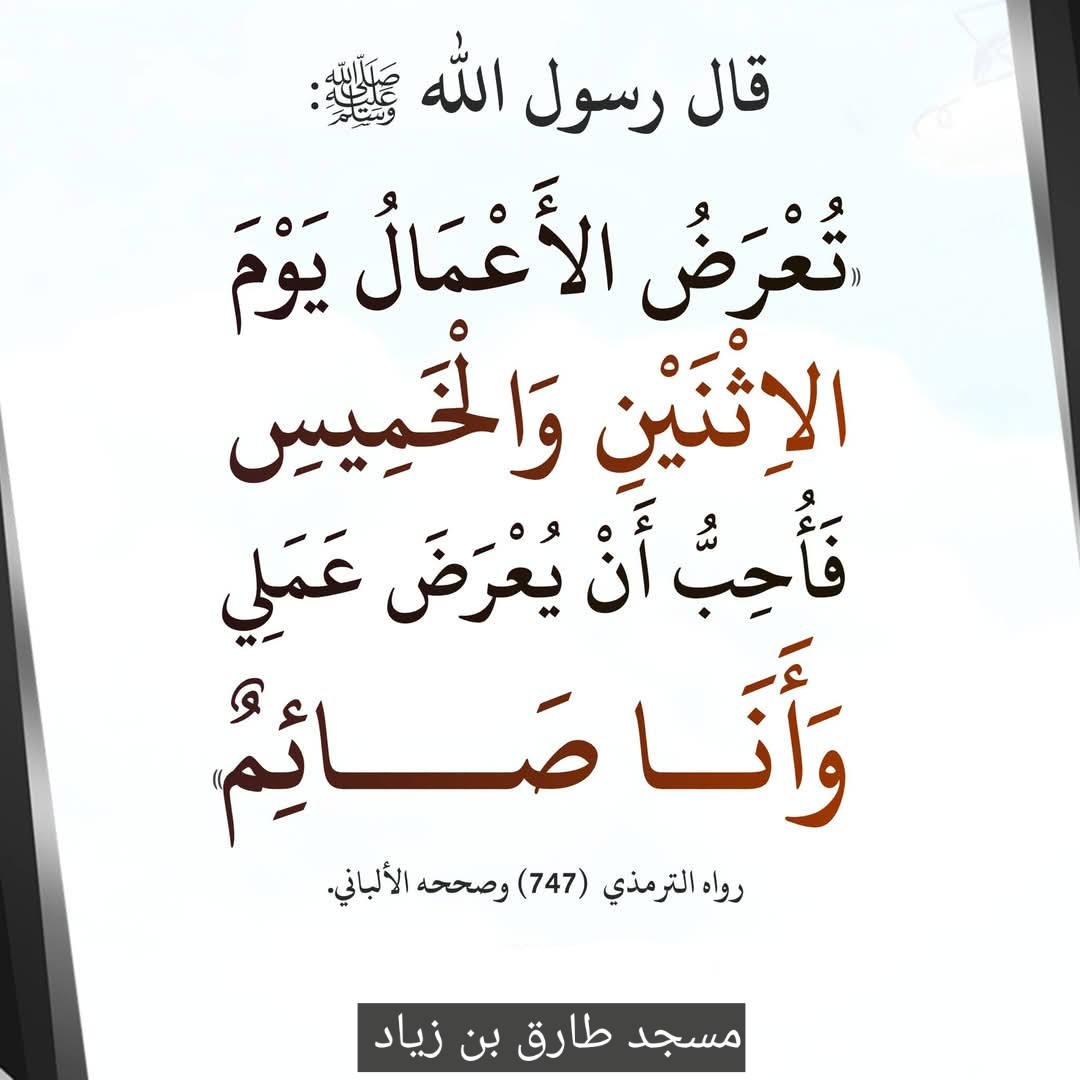 قال رسول الله ﷺ:
«تُعْرَضُ الأَعْمَالُ يَوْمَ
الاِثْنَيْنِ وَالْخَمِيسِ
فَأُحِبُّ أَنْ يُعْرَضَ عَمَلِي
وَأَنَــا صَـــــائِمٌ»
رواه الترمذي (747) وصححه الألباني.
مسجد طارق بن زياد